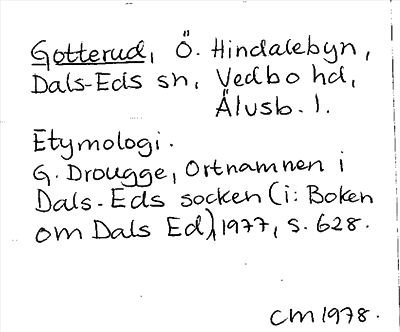 Gotterud, Ö. Hindalebyn,
Dals-Eds sn, Vedbo hd,
Älvsb. l.
Etymologi.
G. Drougge, Ortnamnen i
Dals-Eds socken (i: Boken
om Dals Ed), 1977, s. 628.
CM 1978.